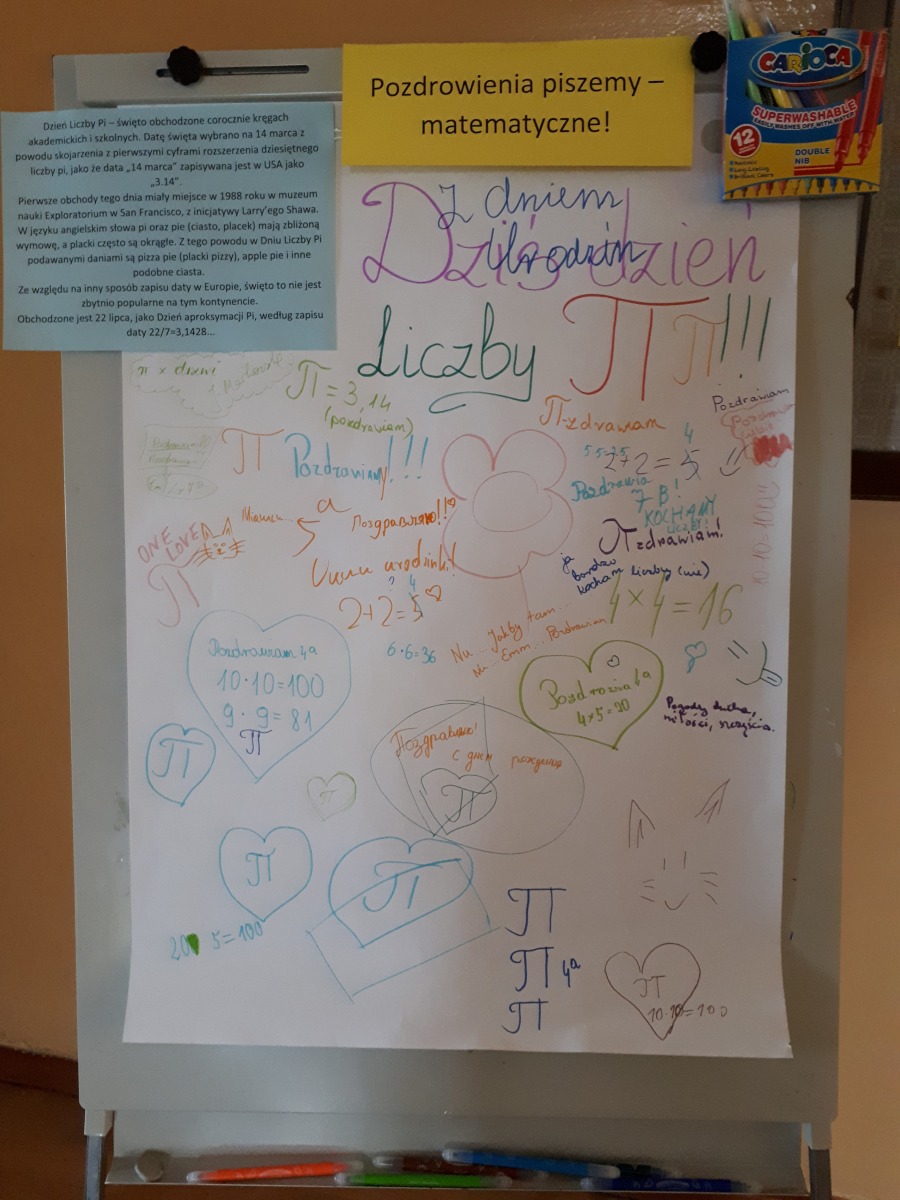 Pozdrowienia piszemy –
matematyczne!
CARIOCA
SUPERWASHABLE
EASILY WASHES OFF WITH WATER
12
DOUBLE
NIB
Dzień Liczby Pi – święto obchodzone corocznie kręgach
akademickich i szkolnych. Datę święta wybrano na 14 marca z
powodu skojarzenia z pierwszymi cyframi rozszerzenia dziesiętnego
liczby pi, jako że data „14 marca” zapisywana jest w USA jako
„3.14”.
Pierwsze obchody tego dnia miały miejsce w 1988 roku w muzeum
nauki Exploratorium w San Francisco, z inicjatywy Larry’ego Shawa.
W języku angielskim słowa pi oraz pie (ciasto, placek) mają zbliżoną
wymowę, a placki często są okrągłe. Z tego powodu w Dniu Liczby Pi
podawanymi daniami są pizza pie (placki pizzy), apple pie i inne
podobne ciasta.
Ze względu na inny sposób zapisu daty w Europie, święto to nie jest
zbytnio popularne na tym kontynencie.
Obchodzone jest 22 lipca, jako Dzień aproksymacji Pi, według zapisu
daty 22/7=3,1428...
Z dniem
Urodzin
Dziś dzień
Liczby π π!!!
π = 3,14
(pozdrawiam)
π-zdrawiam
Pozdrawiam
π Pozdrawiamy!!!
4
2+2=5
Pozdrawia
7B!
KOCHAMY
LICZBY!
ONE
LOVE
π
Поздравляю!!
πzdrawiam!
ja
bardzo
kocham liczby (nie)
urodzinki!
4
2+2=5
4×4=16
10·10=100!!
6·6=36
Nu... Jakby tam...
Nu... Emm... Pozdrawiam
Pozdrawiam 4a
10·10=100
9·9=81
π
Pozdrowia 4a
4×5=20
Pogody ducha,
miłości, szczęścia.
π
Поздравляю!
с днем рождения
π
π
π
π
20 5=100
π
π 4a
π
π
10·10=100